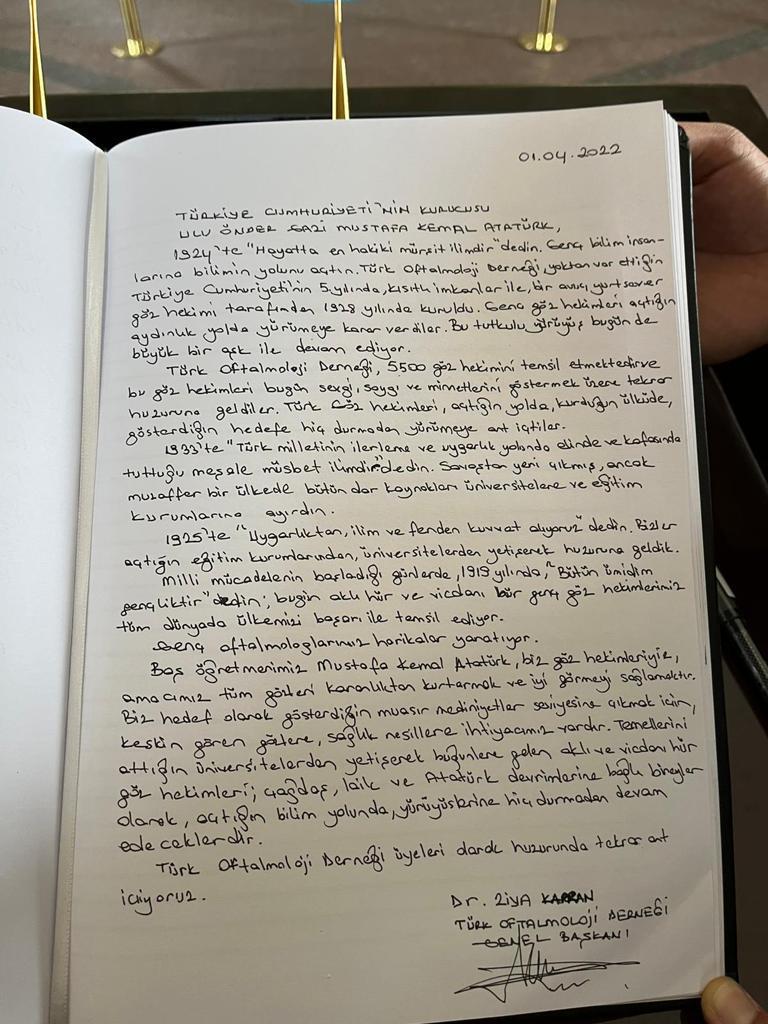 01.04.2022
TÜRKİYE CUMHURİYETİ'NİN KURUCUSU
ULU ÖNDER GAZİ MUSTAFA KEMAL ATATÜRK,
1924'te "Hayatta en hakiki mürşit ilimdir" dedin. Genç bilim insan-
larına bilimin yolunu açtın. Türk Oftalmoloji Derneği, yoktan var ettiğin
Türkiye Cumhuriyeti'nin 5.yılında, kısıtlı imkanlar ile, bir avuç yurtsever
göz hekimi tarafından 1928 yılında kuruldu. Genç göz hekimleri açtığın
aydınlık yolda yürümeye karar verdiler. Bu tutkulu yürüyüş bugün de
büyük bir aşk ile devam ediyor.
Türk Oftalmoloji Derneği, 5500 göz hekimini temsil etmektedir ve
bu göz hekimleri bugün sevgi, saygı ve minnetlerini göstermek üzere tekrar
huzuruna geldiler. Türk Göz hekimleri, açtığın yolda, kurduğun ülküde,
gösterdiğin hedefe hiç durmadan yürümeye ant içtiler.
1933'te "Türk milletinin ilerleme ve uygarlık yolunda elinde ve kafasında
tuttuğu meşale müsbet ilimdir" dedin. Savaştan yeni çıkmış, ancak
muzaffer bir ülkede bütün dar kaynakları üniversitelere ve eğitim
kurumlarına ayırdın.
1925'te "Uygarlıktan, ilim ve fenden kuvvat alıyoruz" dedin. Bizler
açtığın eğitim kurumlarından, üniversitelerden yetişerek huzuruna geldik.
Milli mücadelenin başladığı günlerde, 1919 yılında, "Bütün ümidim
gençliktir" dedin; bugün aklı hür ve vicdanı hür genç göz hekimlerimiz
tüm dünyada ülkemizi başarı ile temsil ediyor.
Genç oftalmologlarımız harikalar yaratıyor.
Baş öğretmenimiz Mustafa Kemal Atatürk, biz göz hekimleriyiz,
amacımız tüm gözleri karanlıktan kurtarmak ve iyi görmeyi sağlamaktır.
Biz hedef olarak gösterdiğin muasır medeniyetler seviyesine çıkmak için,
keskin gören gözlere, sağlık nesillere ihtiyacımız vardır. Temellerini
attığın üniversitelerden yetişerek bugünlere gelen aklı ve vicdanı hür
göz hekimleri; çağdaş, laik ve Atatürk devrimlerine bağlı bireyler
olarak, açtığın bilim yolunda, yürüyüşlerine hiç durmadan devam
edeceklerdir.
Türk Oftalmoloji Derneği üyeleri olarak huzurunda tekrar ant
içiyoruz.
Dr. ZİYA KAPRAN
TÜRK OFTALMOLOJİ DERNEĞİ
GENEL BAŞKANI